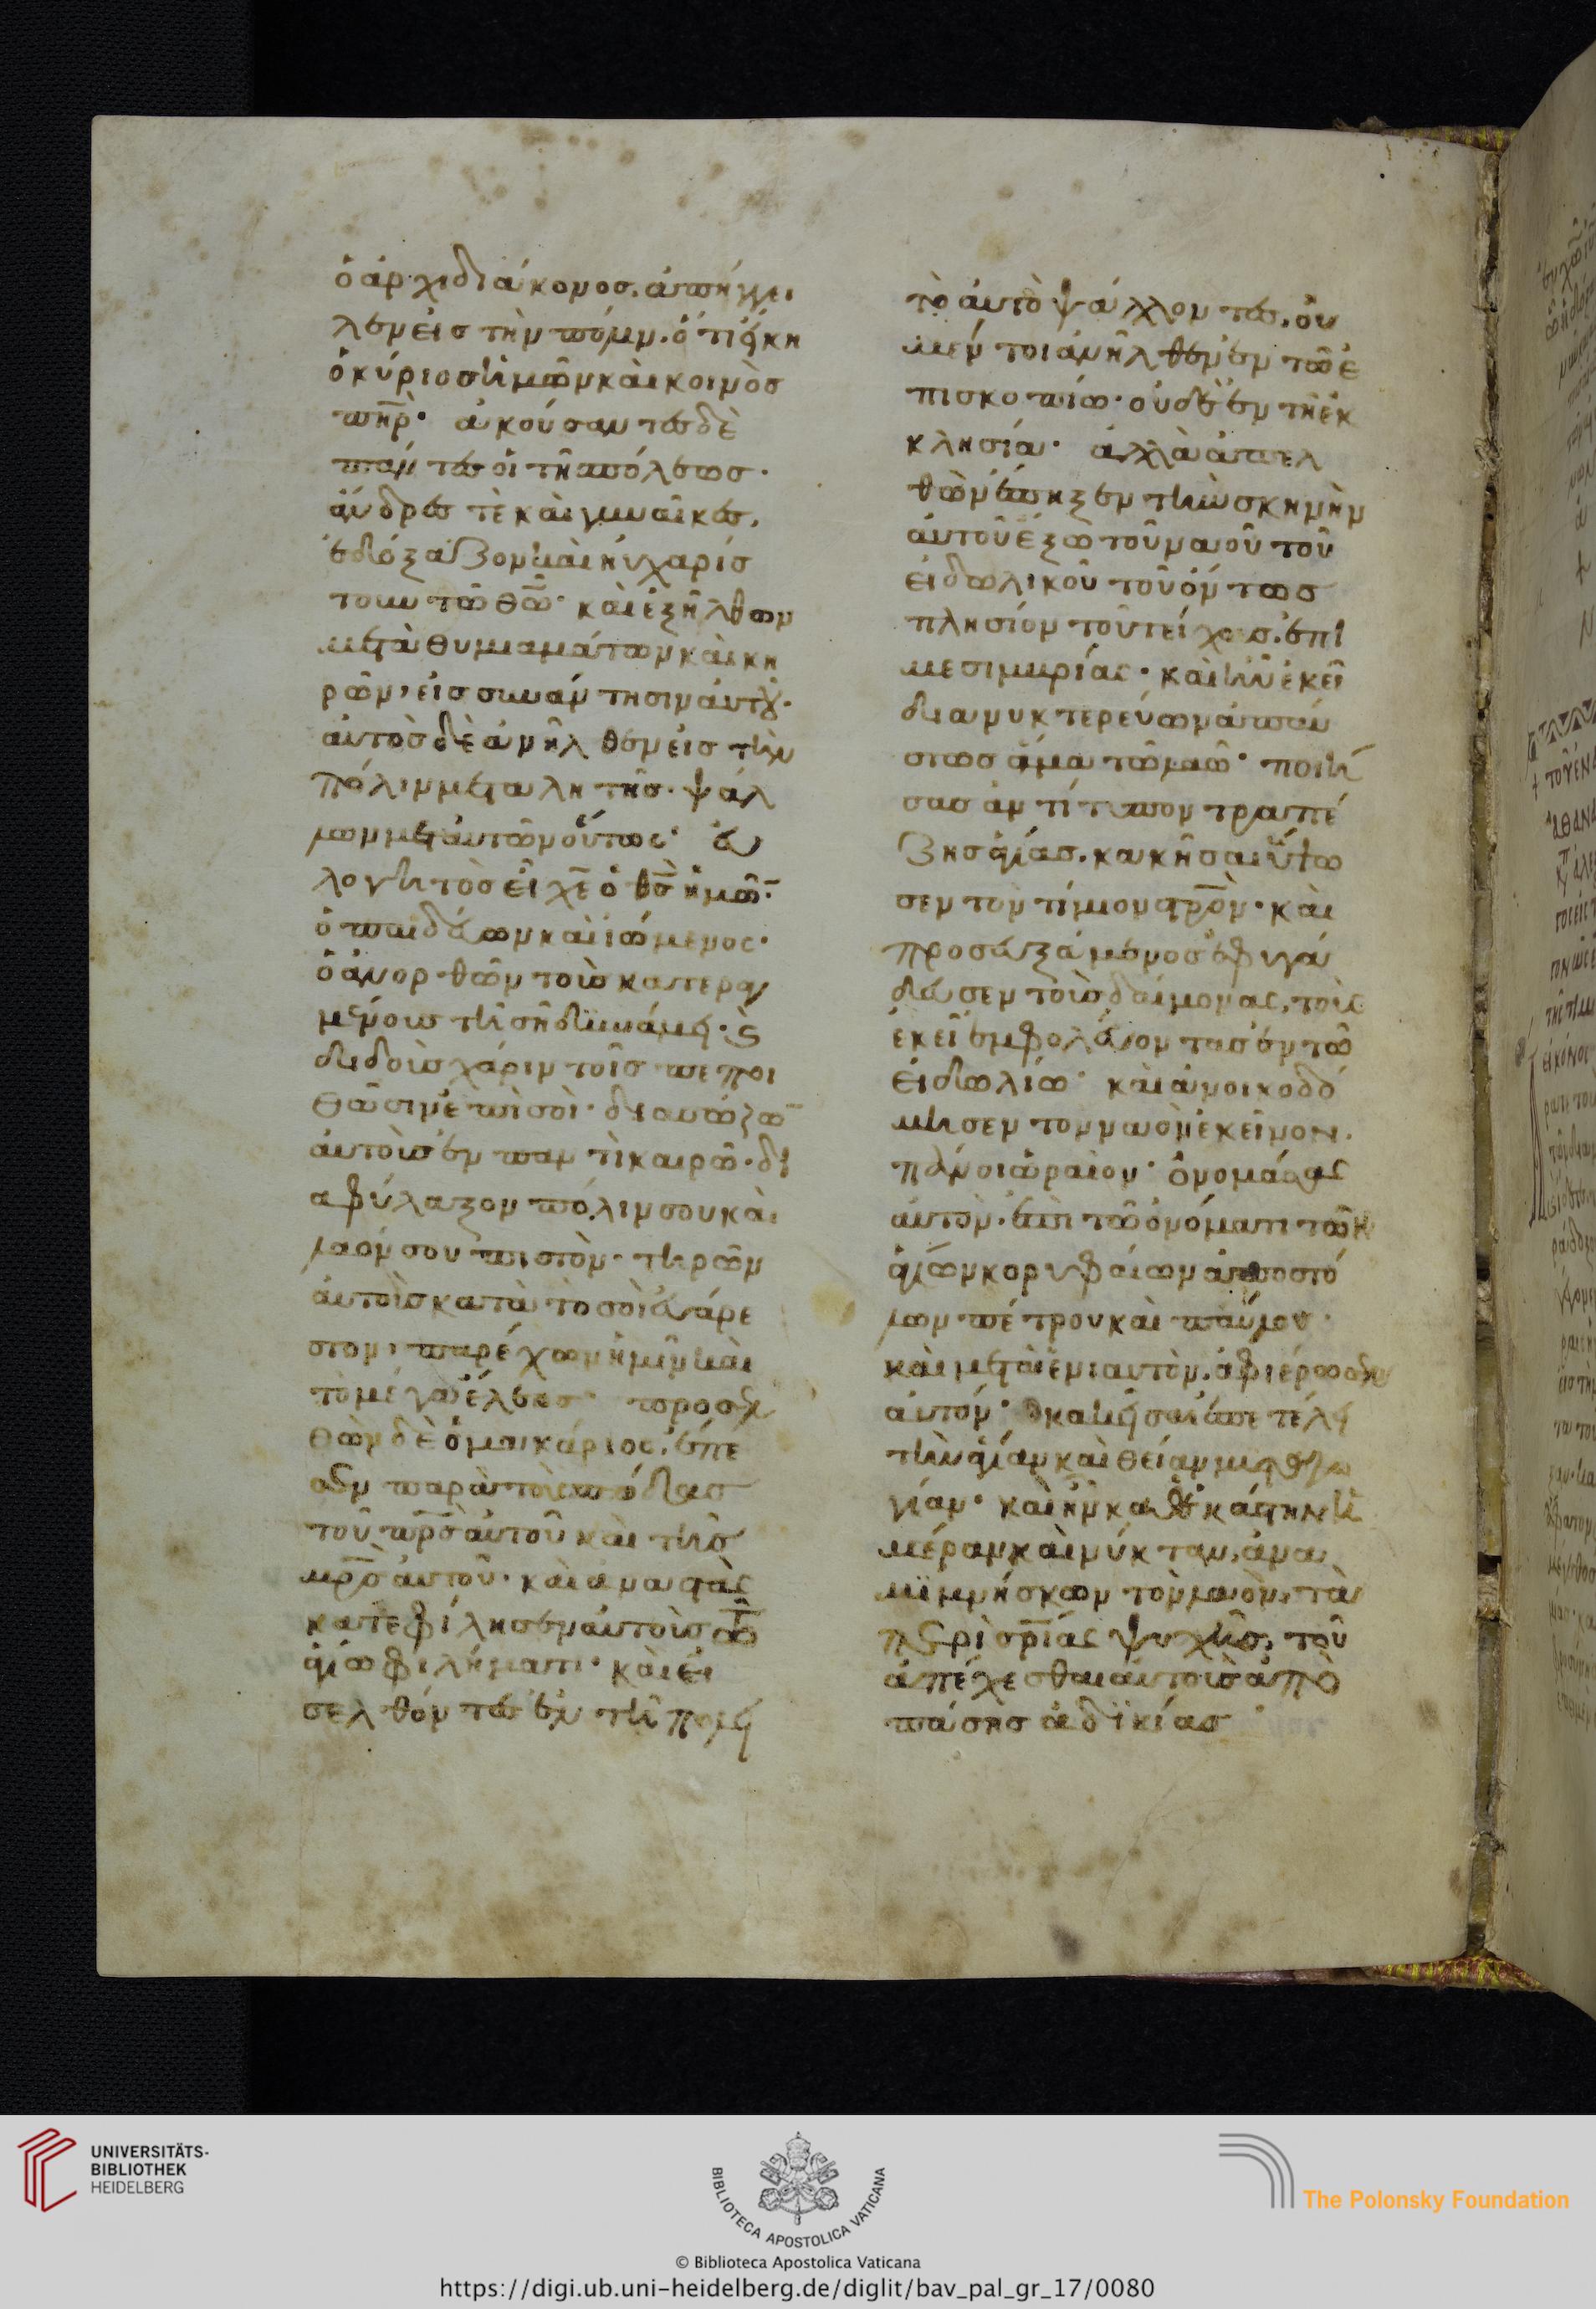 ὁ ἀρχιδιάκονος. ἀπήγγει
λεν εἰς τὴν πόλιν. ὅτι ἥκη
ὁ κύριος ἡμῶν καὶ κοινὸς
πηρ· ἀκούσαντες δὲ
πάντες οἱ τῆς πόλεως·
ἄνδρες τὲ καὶ γυναῖκες,
ἐδόξαζον καὶ ηὐχαρίσ
τουν τῶ θω· καὶ ἐξῆλθον
μετὰ θυμιαμάτων καὶ κη
ρῶν, εἰς συνάντησιν αὐτοῦ·
αὐτὸς δὲ ἀνῆλθεν εἰς τὴν
πόλιν μετὰ λητῆς· ψάλ
λων μετ αὐτῶν οὕτως· εὐ
λογητὸς εἶ χε ὁ θς ἡμῶ·
ὁ παιδεύων καὶ ἰώμενος·
ὁ ἀνορθῶν τοὺς κατερα
μένους τῆ σῆ δυνάμει· ὁ
διδοὺς χάριν τοῖς πεποι
θῶσιν ἐπὶ σοὶ· διασώζω
αὐτοὺς ἐν παντὶ καιρῶ· δι
αφύλαξον πόλιν σου καὶ
λαόν σου πιστὸν· τηρῶν
αὐτοὺς κατὰ τὸ σοὶ εὐάρε
στον, παρέχων ἡμῖν καὶ
τὸ μέγα ἔλεος· προσελ
θὼν δὲ ὁ μακάριος, ἔπε
σεν παρὰ τοὺς πόδας
τοῦ πρσ αὐτοῦ καὶ τῆς
μρσ αὐτοῦ· καὶ ἀναστὰς
κατεφίλησεν αὐτοὺς ἐν
ἁγίω φιλήματι· καὶ εἰ
σελθόντες ἐν τῆ πόλει
τὸ αὐτὸ ψάλλοντες, οὐ
μέν τοι ἀνῆλθεν ἐν τῶ ἐ
πισκοπίω· οὐδὲ ἐν τῆ ἐκ
κλησία· ἀλλὰ ἀπελ
θὼν ἔπηξεν τὴν σκηνὴν
αὐτοῦ ἔξω τοῦ ναοῦ τοῦ
εἰδωλικοῦ τοῦ ὄντως
πλησίον τοῦ τείχους, ἐπὶ
μεσιμβρίας· καὶ ἦν ἐκεῖ
διανυκτερεύων ἀπαύ
στως ἅμα τῶ λαῶ· ποιή
σας ἀντίτυπον τραπέ
ζης ἁγίας. κακῆσαι ὕψω
σεν τὸν τίμιον στρον· καὶ
προσευξάμενος ἐφυγά
δευσεν τοὺς δαίμονας, τοὺς
ἐκεῖ ἐμφολεύοντας ἐν τῶ
εἰδωλίω· καὶ ἀνοικοδό
μησεν τον ναὸν ἐκεῖνον.
πάνοι ὡραῖον· ὀνομάσας
αὐτὸν. ἐπὶ τῶ ὀνόματι τῶν
ἁγίων κορυφαίων ἀποστό
λων πέτρου καὶ παύλου·
καὶ μετὰ ἐνιαυτὸν. ἀφιέρωσεν
αὐτόν· κακῆσαι ἐπετέλει
τὴν ἁγίαν καὶ θείαν μυσταγω
γίαν· καὶ ἦν καθ ἑκάστην ἡ
μέραν καὶ νύκταν, ἀνα
μιμνήσκων τὸν λαὸν, τὰ
περὶ σρίας ψυχῆς, τοῦ
ἀπέχεσθαι αὐτοὺς ἀπὸ
πάσης ἀδικίας
UNIVERSITÄTS-
BIBLIOTHEK
HEIDELBERG
BIBLIOTECA APOSTOLICA VATICANA
The Polonsky Foundation
© Biblioteca Apostolica Vaticana
https://digi.ub.uni-heidelberg.de/diglit/bav_pal_gr_17/0080